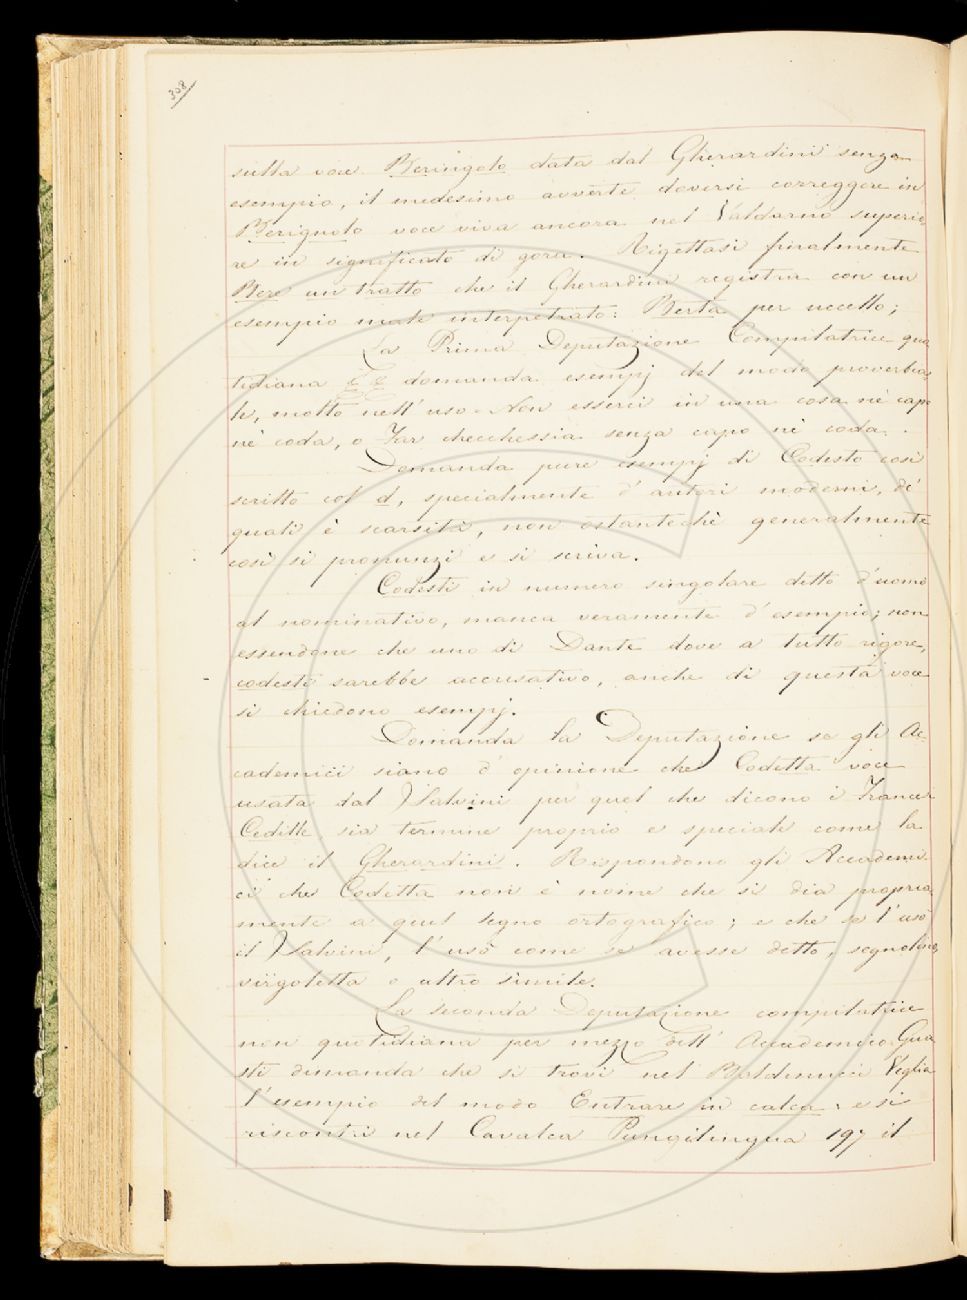 308
sulla voce Beringolo data dal Gherardini senza
esempio, il medesimo avverte doversi correggere in
Berignolo voce viva ancora nel Valdarno superio-
re in significato di gora. Rigettasi finalmente
Bere un tratto che il Gherardini registra con un
esempio male interpetrato: Berta per uccello;
La Prima Deputazione Compilatrice quo
tidiana domanda esempj del modo proverbia-
le, molto nell' uso - Non esserci in una cosa nè capo
nè coda, o Far checchessia senza capo nè coda.
Domanda pure esempj di Codesto così
scritto col d, specialmente d' autori moderni, de'
quali è scarsità, non ostantechè generalmente
così si pronunzi e si scriva.
Codesti in numero singolare detto d' uomo
al nominativo, manca veramente d' esempio; non
essendone che uno di Dante dove a tutto rigore,
codesti sarebbe accusativo, anche di questa voce
si chiedono esempj.
Domanda la Deputazione se gli Ac-
cademici siano d' opinione che Codetta voce
usata dal Salvini per quel che dicono i Francesi
Cedille, sia termine proprio e speciale come la
dice il Gherardini. Rispondono gli Accademi-
ci che Codetta non è nome che si dia propria
mente a quel segno ortografico; e che se l' usò
il Salvini, l' usò come se avesse detto, segnolino,
virgoletta o altro simile.
La seconda Deputazione compilatrice
non quotidiana per mezzo dell' Accademico Gua
sti dimanda che si trovi nel Baldinucci Veglia
l' esempio del modo Entrare in calca, e si
riscontri nel Cavalca Pungilingua 197 il